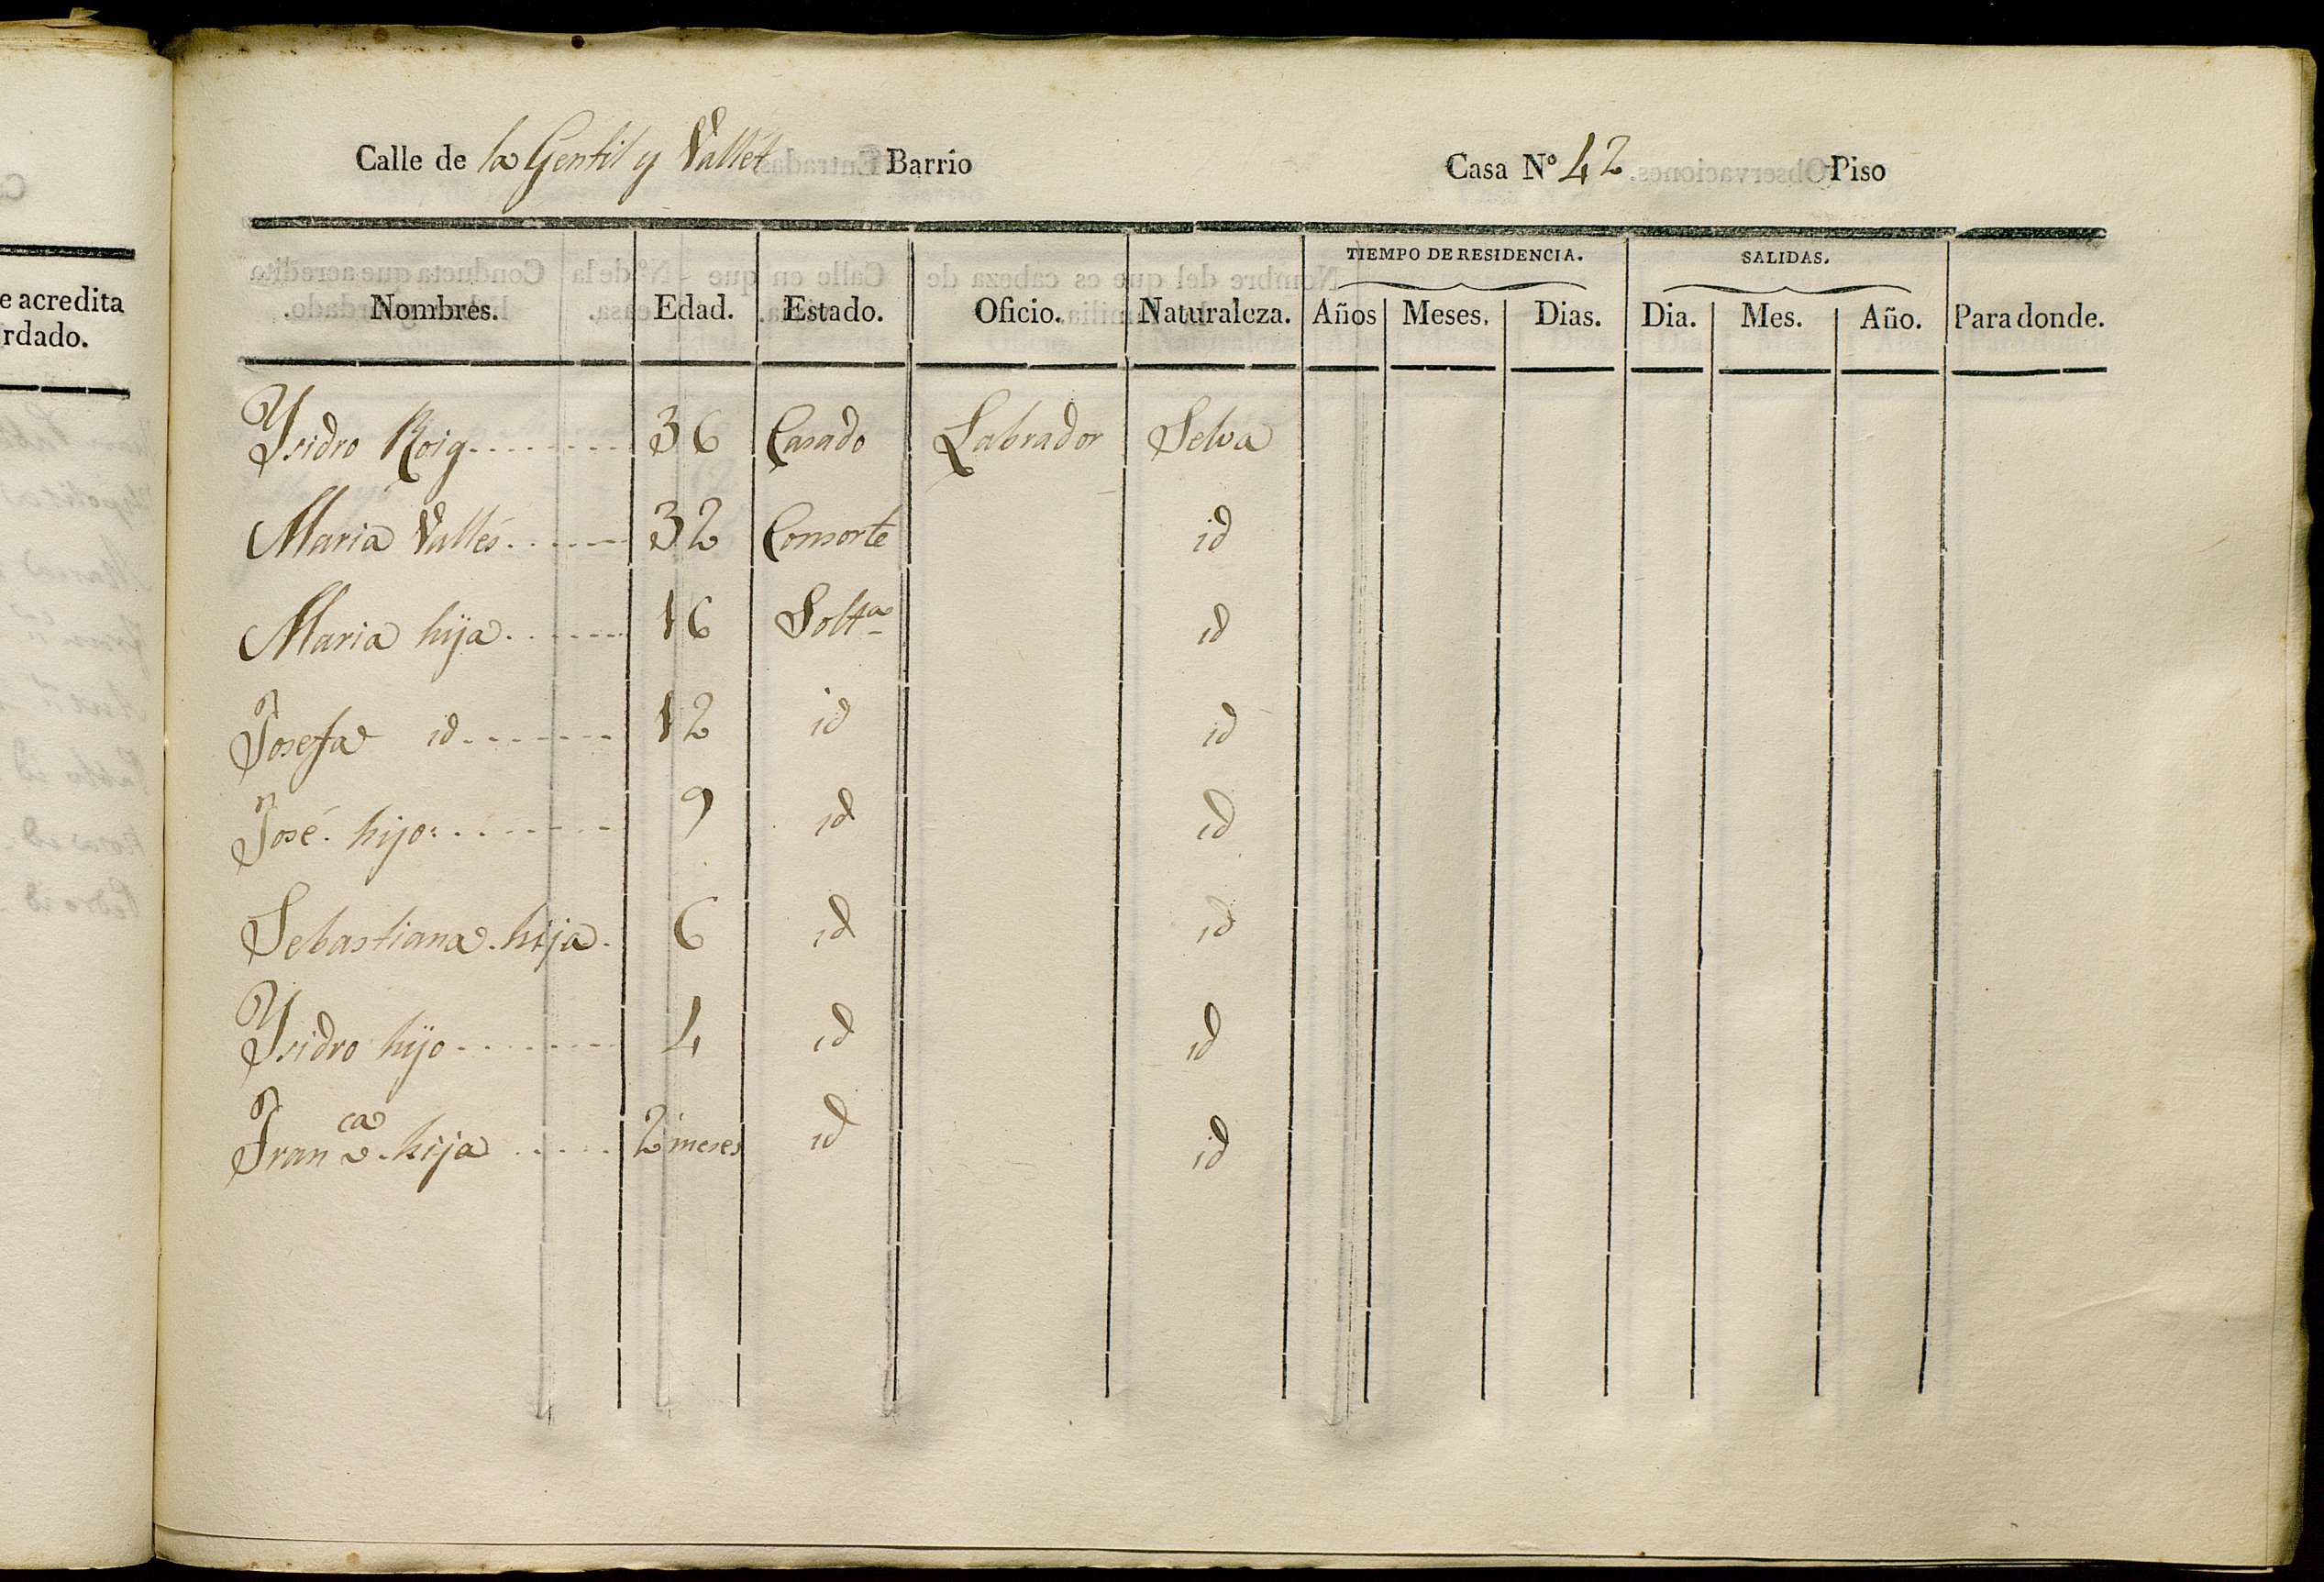 Calle de la Gentil y Vallet Barrio Casa Nº 42 Piso
TIEMPO DE RESIDENCIA. SALIDAS.
e acredita Nombres. Edad. Estado. Oficio. Naturaleza. Años Meses. Dias. Dia. Mes. Año. Para donde.
rdado.
Ysidro Roig 36 Casado Labrador Selva
Maria Vallés 32 Consorte id
Maria hija 16 Solt.ª id
Josefa id 12 id id
José hijo 9 id id
Sebastiana hija 6 id id
Ysidro hijo 4 id id
Fran.ca hija 2 meses id id